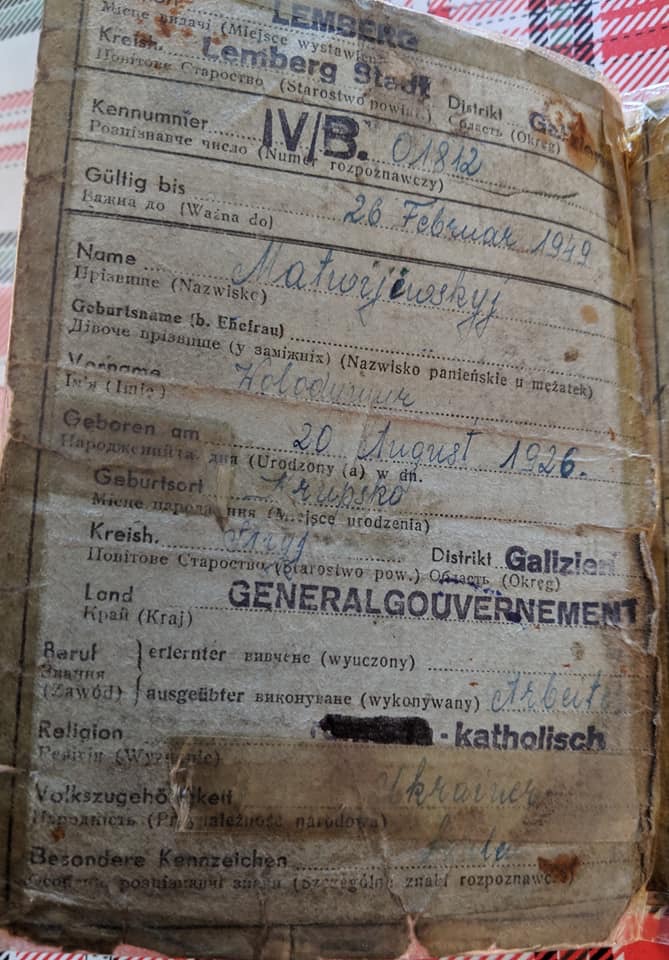 LEMBERG
Місце видачі (Miejsce wystawien
Kreish. Lemberg Stadt
Повітове Староство (Starostwo powiat.)
Distrikt Galizien
Область (Okręg)
Kennummer IV/B. 01812
Розпізнавче число (Numer rozpoznawczy)
Gültig bis 26 Februar 1949
Важна до (Ważna do)
Name Matwijiwskyj
Прізвище (Nazwisko)
Geburtsname (b. Ehefrau)
Дівоче прізвище (у заміжніх) (Nazwisko panieńskie u mężatek)
Vorname Wolodymyr
Ім'я (Imię)
Geboren am 20 August 1926.
дня (Urodzony (a) w dn.
Geburtsort Krupsko
Місце народження (Miejsce urodzenia)
Kreish. Stryj
Повітове Староство (Starostwo pow.)
Distrikt Galizien
Область (Okręg)
Land GENERALGOUVERNEMENT
Край (Kraj)
Beruf erlernter вивчене (wyuczony)
Звання
(Zawód) ausgeübter виконуване (wykonywany) Arbeite
Religion - katholisch
Релігія (Wyznanie)
Volkszugehörigkeit Ukrainer
Народність (Przynależność narodowa)
Besondere Kennzeichen
Особливі розпізнавчі знаки (Szczególne znaki rozpoznawcze)